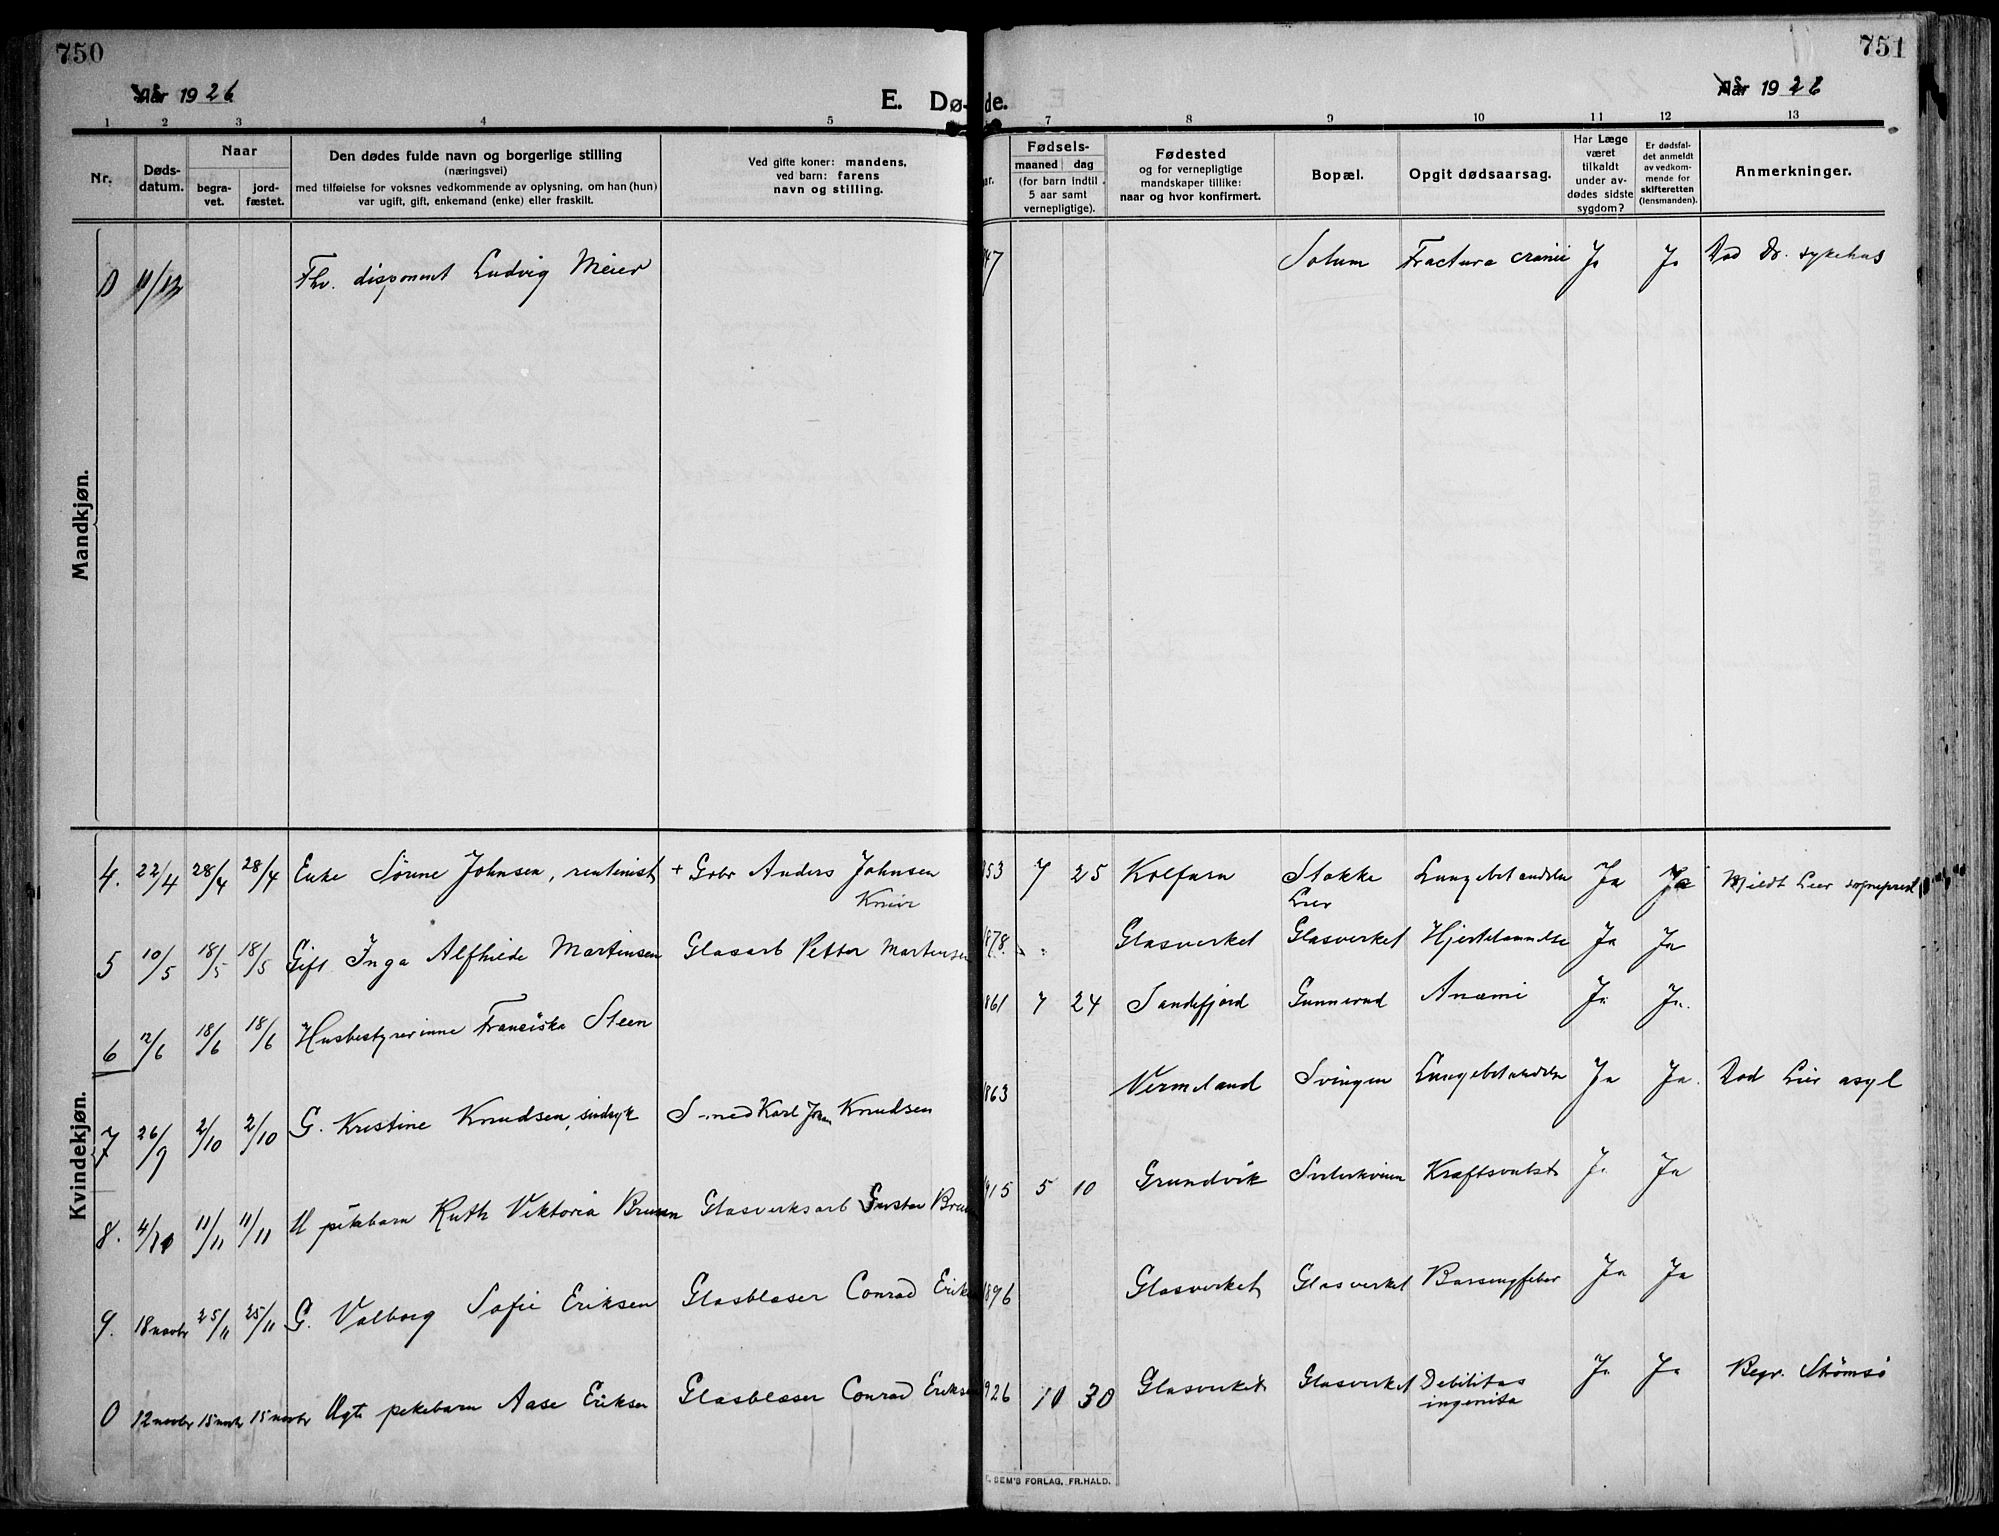 750
751
Aar 1926
E. Dø-
de.
Aar 1926
1 2 3 4 5 7 8 9 10 11 12 13
Nr.
Døds-
datum.
Naar
begra-
vet.
jord-
fæstet.
Den dødes fulde navn og borgerlige stilling
(næringsvei)
med tilføielse for voksnes vedkommende av oplysning, om han (hun)
var ugift, gift, enkemand (enke) eller fraskilt.
Ved gifte koner: mandens,
ved barn: farens
navn og stilling.
Fødsels-
maaned dag
(for barn indtil
5 aar samt
vernepligtige).
Fødested
og for vernepligtige
mandskaper tillike:
naar og hvor konfirmert.
Bopæl.
Opgit dødsaarsag.
Har Læge
været
tilkaldt
under av-
dødes sidste
sygdom?
Er dødsfal-
det anmeldt
av vedkom-
mende for
skifteretten
(lensmanden).
Anmerkninger.
Mandkjøn.
Fhv. disponent Ludvig Meier 47 Solum Fractura cranii Ja Ja Død Dr. sykehus
Kvindekjøn.
4. 22/4 28/4 28/4 Enke Sørine Johnsen, rentenist + Grbr Anders Johnsen 853 7 25 Stokke Lungebetændelse Ja Ja
Lier
5 10/5 18/5 18/5 Gift Inga Alfhilde Martinsen Glasarb Petter Martinsen 1878. Glasverket Glasverket Ja Ja
6 12/6 18/6 18/6 Husbestyrerinne Franciska Steen 861 7 24 Sandefjord Gunnerud Anæmi Ja Ja.
7 26/9 2/10 2/10 G. Kristine Knudsen, Karl Johan Knudsen 863 Vermeland Svingen Lungebetændelse Ja Ja. Død Lier asyl
8. 11/11 11/11 U pikebarn Ruth Viktoria Bruun Glasverksarb Gustav Bruun 915 5 10 Grundvik Kræftsvulst Ja Ja
9. 18 novbr 25/11 25/11 G. Valborg Sofie Eriksen Glasblaser Conrad Eriksen 1896 Glasverket Glasverket Barselfeber Ja Ja
0 12 novbr 15 novbr 15 novbr Ægte pikebarn Aase Eriksen Glasblaser Conrad Eriksen 926 10 30 Glasverket Glasverket Debilitas Ja Ja Begr. Strømsø
ingenita
SEM'S FORLAG, FR.HALD.